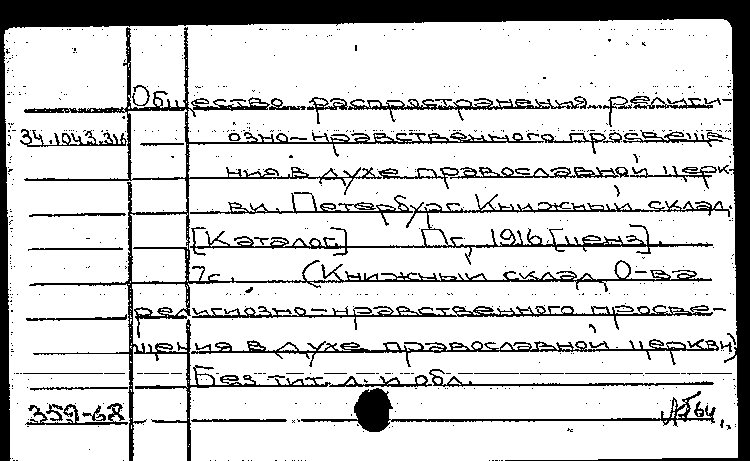 Общество распространения религи-
34.1043.316 озно-нравственного просвеще-
ния в духе православной церк-
ви. Петербург. Книжный склад.
[Каталог] Пг, 1916 [ценз].
7с. (Книжный склад О-ва
религиозно-нравственного просве-
щения в духе православной церкви)
Без тит. л. и обл.
359-68